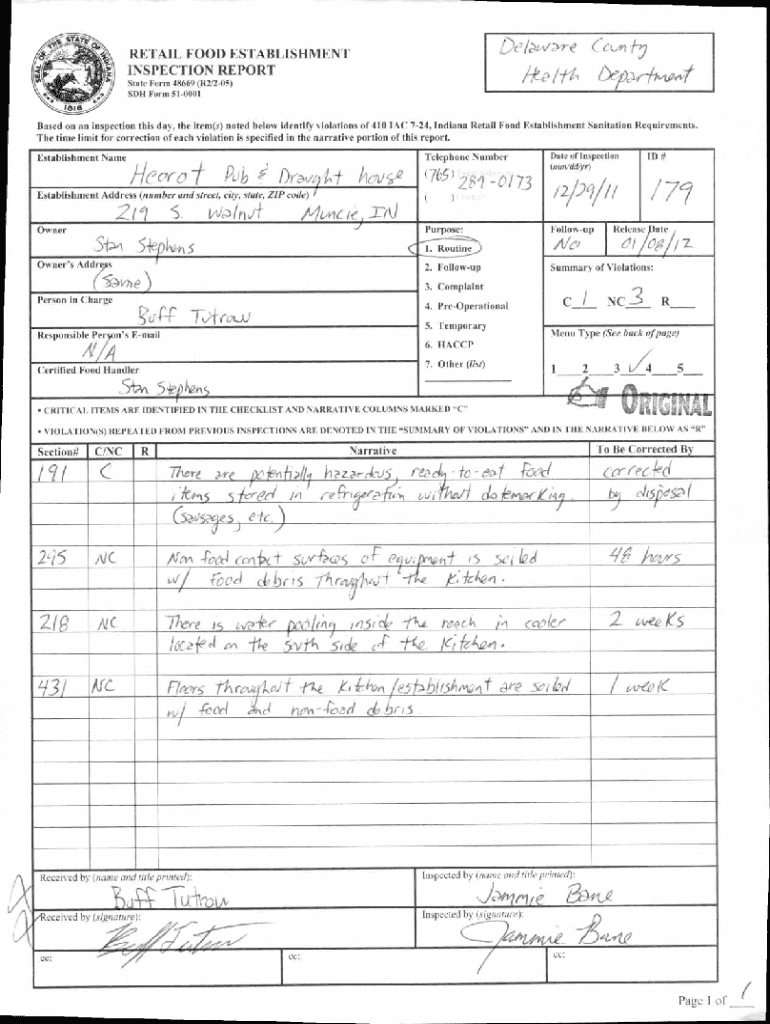 SEAL OF THE STATE OF INDIANA
1816
RETAIL FOOD ESTABLISHMENT
INSPECTION REPORT
State Form 48669 (R2/2-05)
SDH Form 51-0001
Delaware County
Health Department
Based on an inspection this day, the item(s) noted below identify violations of 410 IAC 7-24, Indiana Retail Food Establishment Sanitation Requirements.
The time limit for correction of each violation is specified in the narrative portion of this report.
Establishment Name
Heorot Pub & Draught house
Telephone Number
(765) 289-0173
( )
Date of Inspection
(mm/dd/yr)
12/29/11
ID #
179
Establishment Address (number and street, city, state, ZIP code)
219 S. Walnut Muncie, IN
Owner
Stan Stephens
Owner's Address
(Same)
Person in Charge
Buff Tutrow
Responsible Person's E-mail
N/A
Certified Food Handler
Stan Stephens
Purpose:
1. Routine
2. Follow-up
3. Complaint
4. Pre-Operational
5. Temporary
6. HACCP
7. Other (list)
Follow-up
No
Release Date
01/08/12
Summary of Violations:
C 1 NC 3 R
Menu Type (See back of page)
1 2 3 ✓ 4 5
ORIGINAL
• CRITICAL ITEMS ARE IDENTIFIED IN THE CHECKLIST AND NARRATIVE COLUMNS MARKED "C"
• VIOLATION(S) REPEATED FROM PREVIOUS INSPECTIONS ARE DENOTED IN THE "SUMMARY OF VIOLATIONS" AND IN THE NARRATIVE BELOW AS "R"
Section# C/NC R Narrative To Be Corrected By
191 C There are potentially hazardous, ready-to-eat food corrected
items stored in refrigeration without datemarking. by disposal
(sausages, etc.)
295 NC Non food contact surfaces of equipment is soiled 48 hours
w/ food debris throughout the kitchen.
218 NC There is water pooling inside the reach in cooler 2 weeks
located on the south side of the kitchen.
431 NC Floors throughout the kitchen/establishment are soiled 1 week
w/ food and non-food debris
Received by (name and title printed):
Buff Tutrow
Inspected by (name and title printed):
Jammie Bane
Received by (signature):
Buff Tutrow
Inspected by (signature):
Jammie Bane
cc: cc: cc:
Page 1 of 1